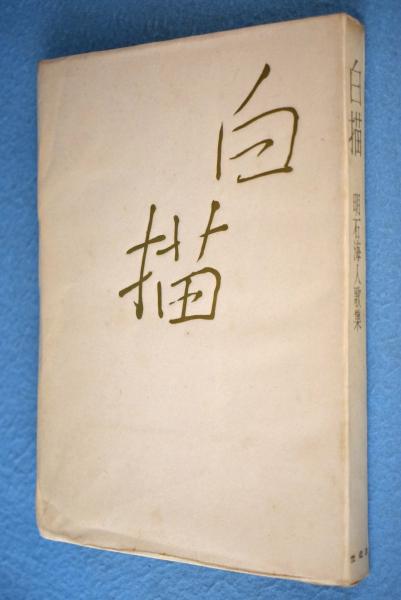 白描
白描 明石海人歌集